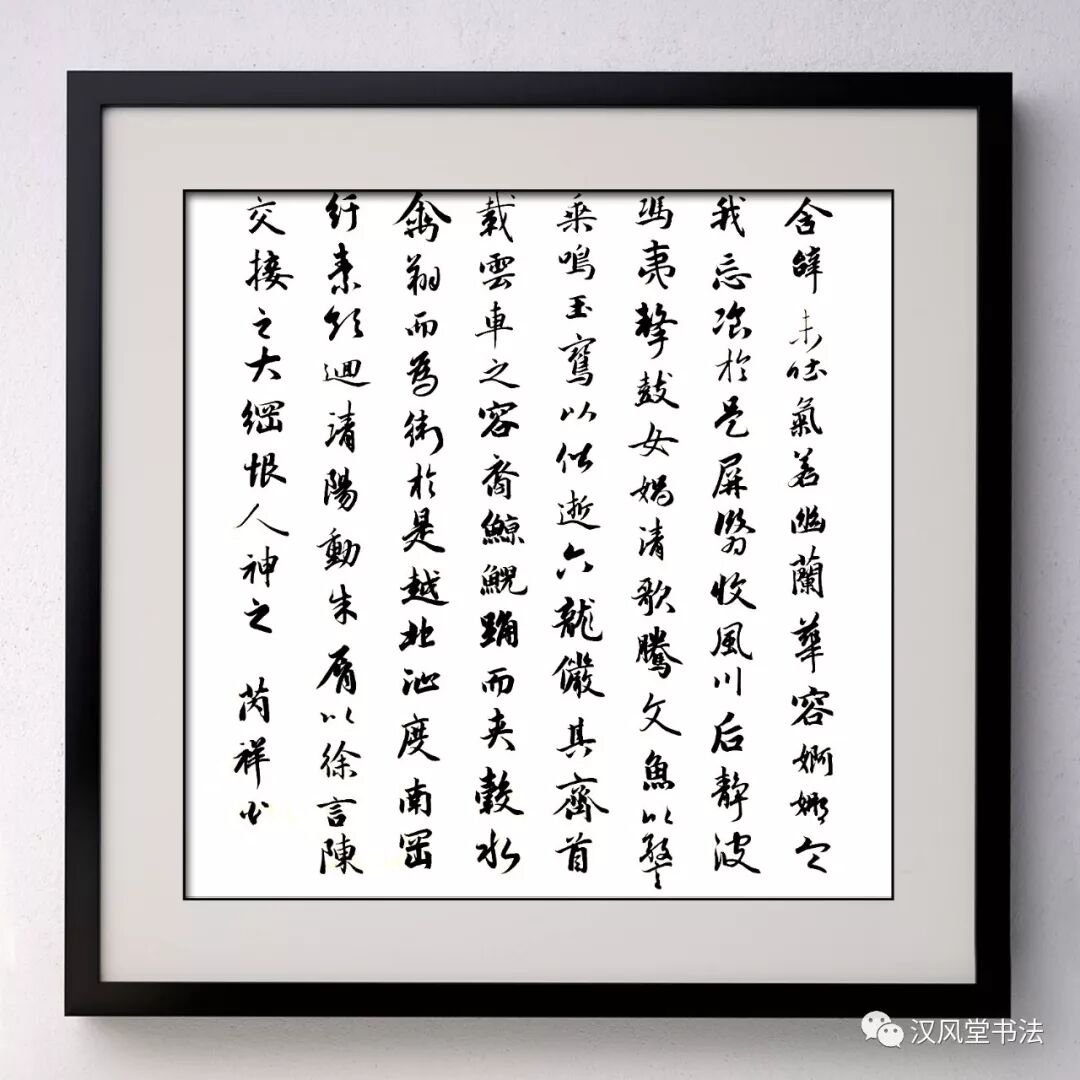 含辭未吐氣若幽蘭華容婀娜令
我忘飡於是屏翳收風川后靜波
馮夷擊鼓女媧清歌騰文魚以警
乘鳴玉鸞以偕逝六龍儼其齊首
載雲車之容裔鯨鯢踴而夾轂水
禽翔而為衛於是越北沚度南岡
紆素領迴清陽動朱脣以徐言陳
交接之大綱恨人神之 芮祥书
汉风堂书法